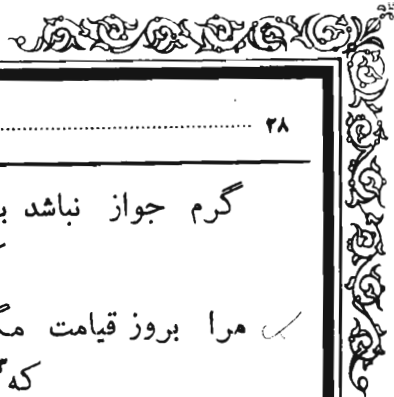 ۲۸
گرم جواز نباشد
مرا بروز قیامت
که